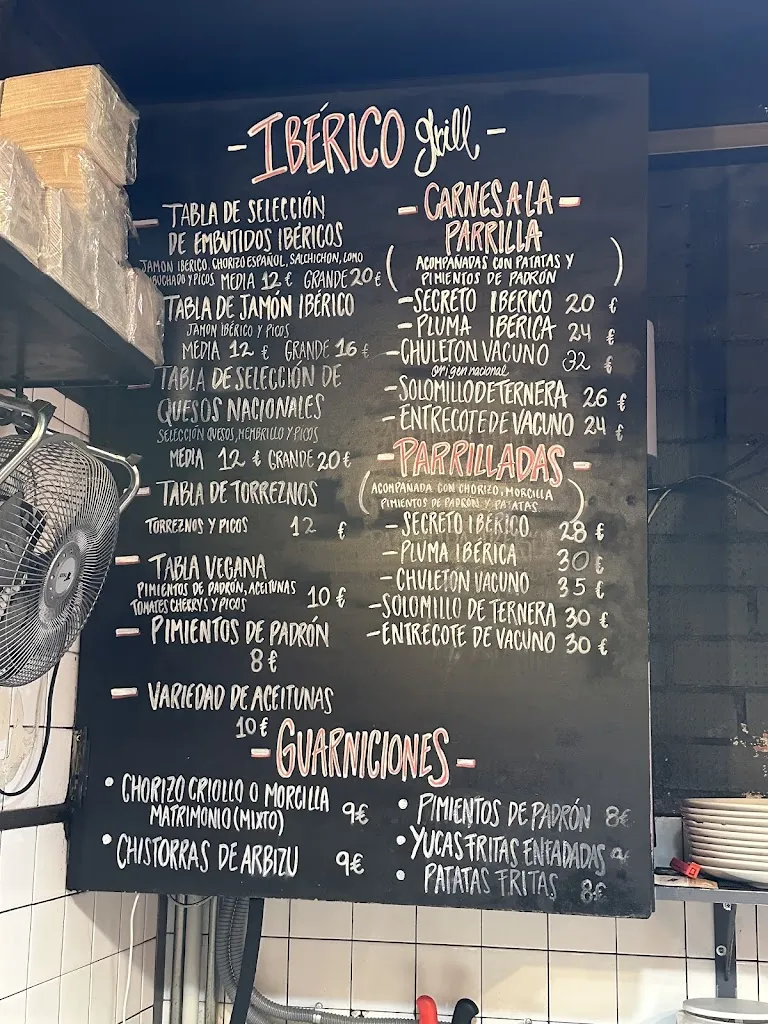 -IBÉRICO grill-
- TABLA DE SELECCIÓN
DE EMBUTIDOS IBÉRICOS
JAMON IBERICO, CHORIZO ESPAÑOL, SALCHICHON, LOMO
EMBUCHADO Y PICOS MEDIA 12 € GRANDE 20 €
TABLA DE JAMÓN IBÉRICO
JAMON IBÉRICO Y PICOS
MEDIA 12 € GRANDE 16 €
TABLA DE SELECCIÓN DE
QUESOS NACIONALES
SELECCIÓN QUESOS, MEMBRILLO Y PICOS
MEDIA 12 € GRANDE 20 €
- TABLA DE TORREZNOS
TORREZNOS Y PICOS 12 €
- TABLA VEGANA
PIMIENTOS DE PADRÓN, ACEITUNAS
TOMATES CHERRYS Y PICOS 10 €
- PIMIENTOS DE PADRÓN
8 €
- VARIEDAD DE ACEITUNAS
10 €
- CARNES A LA -
PARRILLA
(ACOMPAÑADAS CON PATATAS Y
PIMIENTOS DE PADRÓN)
- SECRETO IBERICO 20 €
- PLUMA IBÉRICA 24 €
- CHULETON VACUNO 32 €
origen nacional
- SOLOMILLO DE TERNERA 26 €
- ENTRECOTE DE VACUNO 24 €
- PARRILLADAS -
(ACOMPAÑADA CON CHORIZO, MORCILLA
PIMIENTOS DE PADRÓN Y PATATAS)
- SECRETO IBÉRICO 28 €
- PLUMA IBÉRICA 30 €
- CHULETON VACUNO 35 €
- SOLOMILLO DE TERNERA 30 €
- ENTRECOTE DE VACUNO 30 €
- GUARNICIONES -
• CHORIZO CRIOLLO O MORCILLA
MATRIMONIO (MIXTO) 9€
• CHISTORRAS DE ARBIZU 9€
• PIMIENTOS DE PADRÓN 8€
• YUCAS FRITAS ENFADADAS
• PATATAS FRITAS 8€